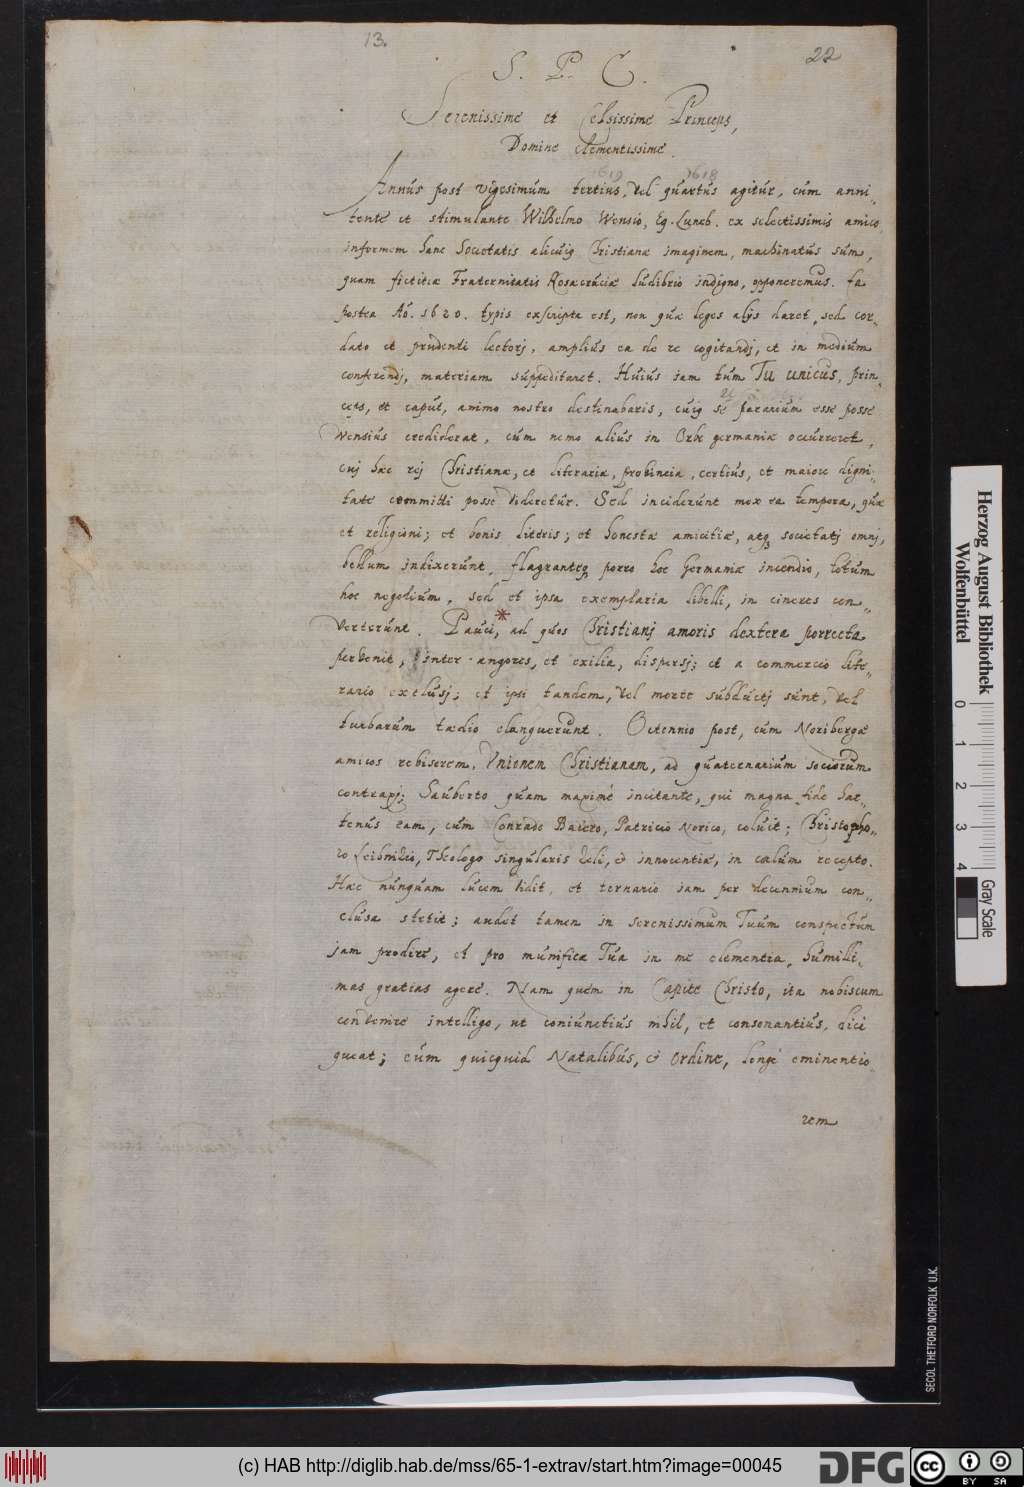 13.
22
S. P. C.
Serenissime et Celsissime Princeps,
Domine clementissime.
1619 1618
Annus post vigesimum tertius, vel quartus agitur, cum anni-
tente et stimulante Wilhelmo Wensio, Eq. Luneb. ex selectissimis amico,
informem hanc Societatis alicuiq Christianæ imaginem, machinatus sum,
quam fictitiæ Fraternitatis Rosæcruciæ ludibrio indigno, opponeremus. Ea
postea Aō. 1620. typis exscripta est, non quæ leges alijs daret, sed cor-
dato et prudenti lectorj, amplius ea de re cogitandj, et in medium
conferendj, materiam suppeditaret. Huius iam tum Tu unicus, prin-
ceps, et caput, animo nostro destinabaris, cuiq se pararium esse posse
Wensius crediderat, cum nemo alius in Orbe germaniæ occurreret,
cuj hæc rej Christianæ, et literariæ, provincia, certius, et maiore digni-
tate committi posse videretur. Sed inciderunt mox ea tempora, quæ
et religioni; et bonis literis; et honestæ amicitiæ, atq societatj omnj,
bellum indixerunt, flagranteq porro hoc Germaniæ incendio, totum
hoc negotium, sed et ipsa exemplaria libelli, in cineres con-
verterunt. Pauci, ad quos Christianj amoris dextera porrecta
pervenit, inter angores, et exilia, dispersj; et a commercio lite-
rario exclusj; et ipsi tandem, vel morte subductj sunt, vel
turbarum tædio elanguerunt. Octennio post, cum Noribergæ
amicos reviserem, Unionem Christianam, ad quaternarium sociorum
contraxj; Sauberto quam maximè incitante, qui magna fide hac-
tenus eam, cum Conrado Baiero, Patricio Norico, coluit; Christopho-
ro Leibnizio, Theologo singularis zeli, & innocentiæ, in cœlum recepto.
Hæc nunquam lucem vidit, et ternario iam per decennium con-
clusa stetit; audet tamen in serenissimum Tuum conspectum
jam prodire, et pro munifica Tua in me clementia, humilli-
mas gratias agere. Nam quem in Capite Christo, ita nobiscum
convenire intelligo, ut coniunctius nihil, et consonantius, dici
queat; cum quicquid Natalibus, & Ordine, longè eminentio-
rem
Herzog August Bibliothek
Wolfenbüttel
0 1 2 3 4
Gray Scale
SECOL THETFORD NORFOLK U.K.
(c) HAB http://diglib.hab.de/mss/65-1-extrav/start.htm?image=00045
DFG
cc BY SA